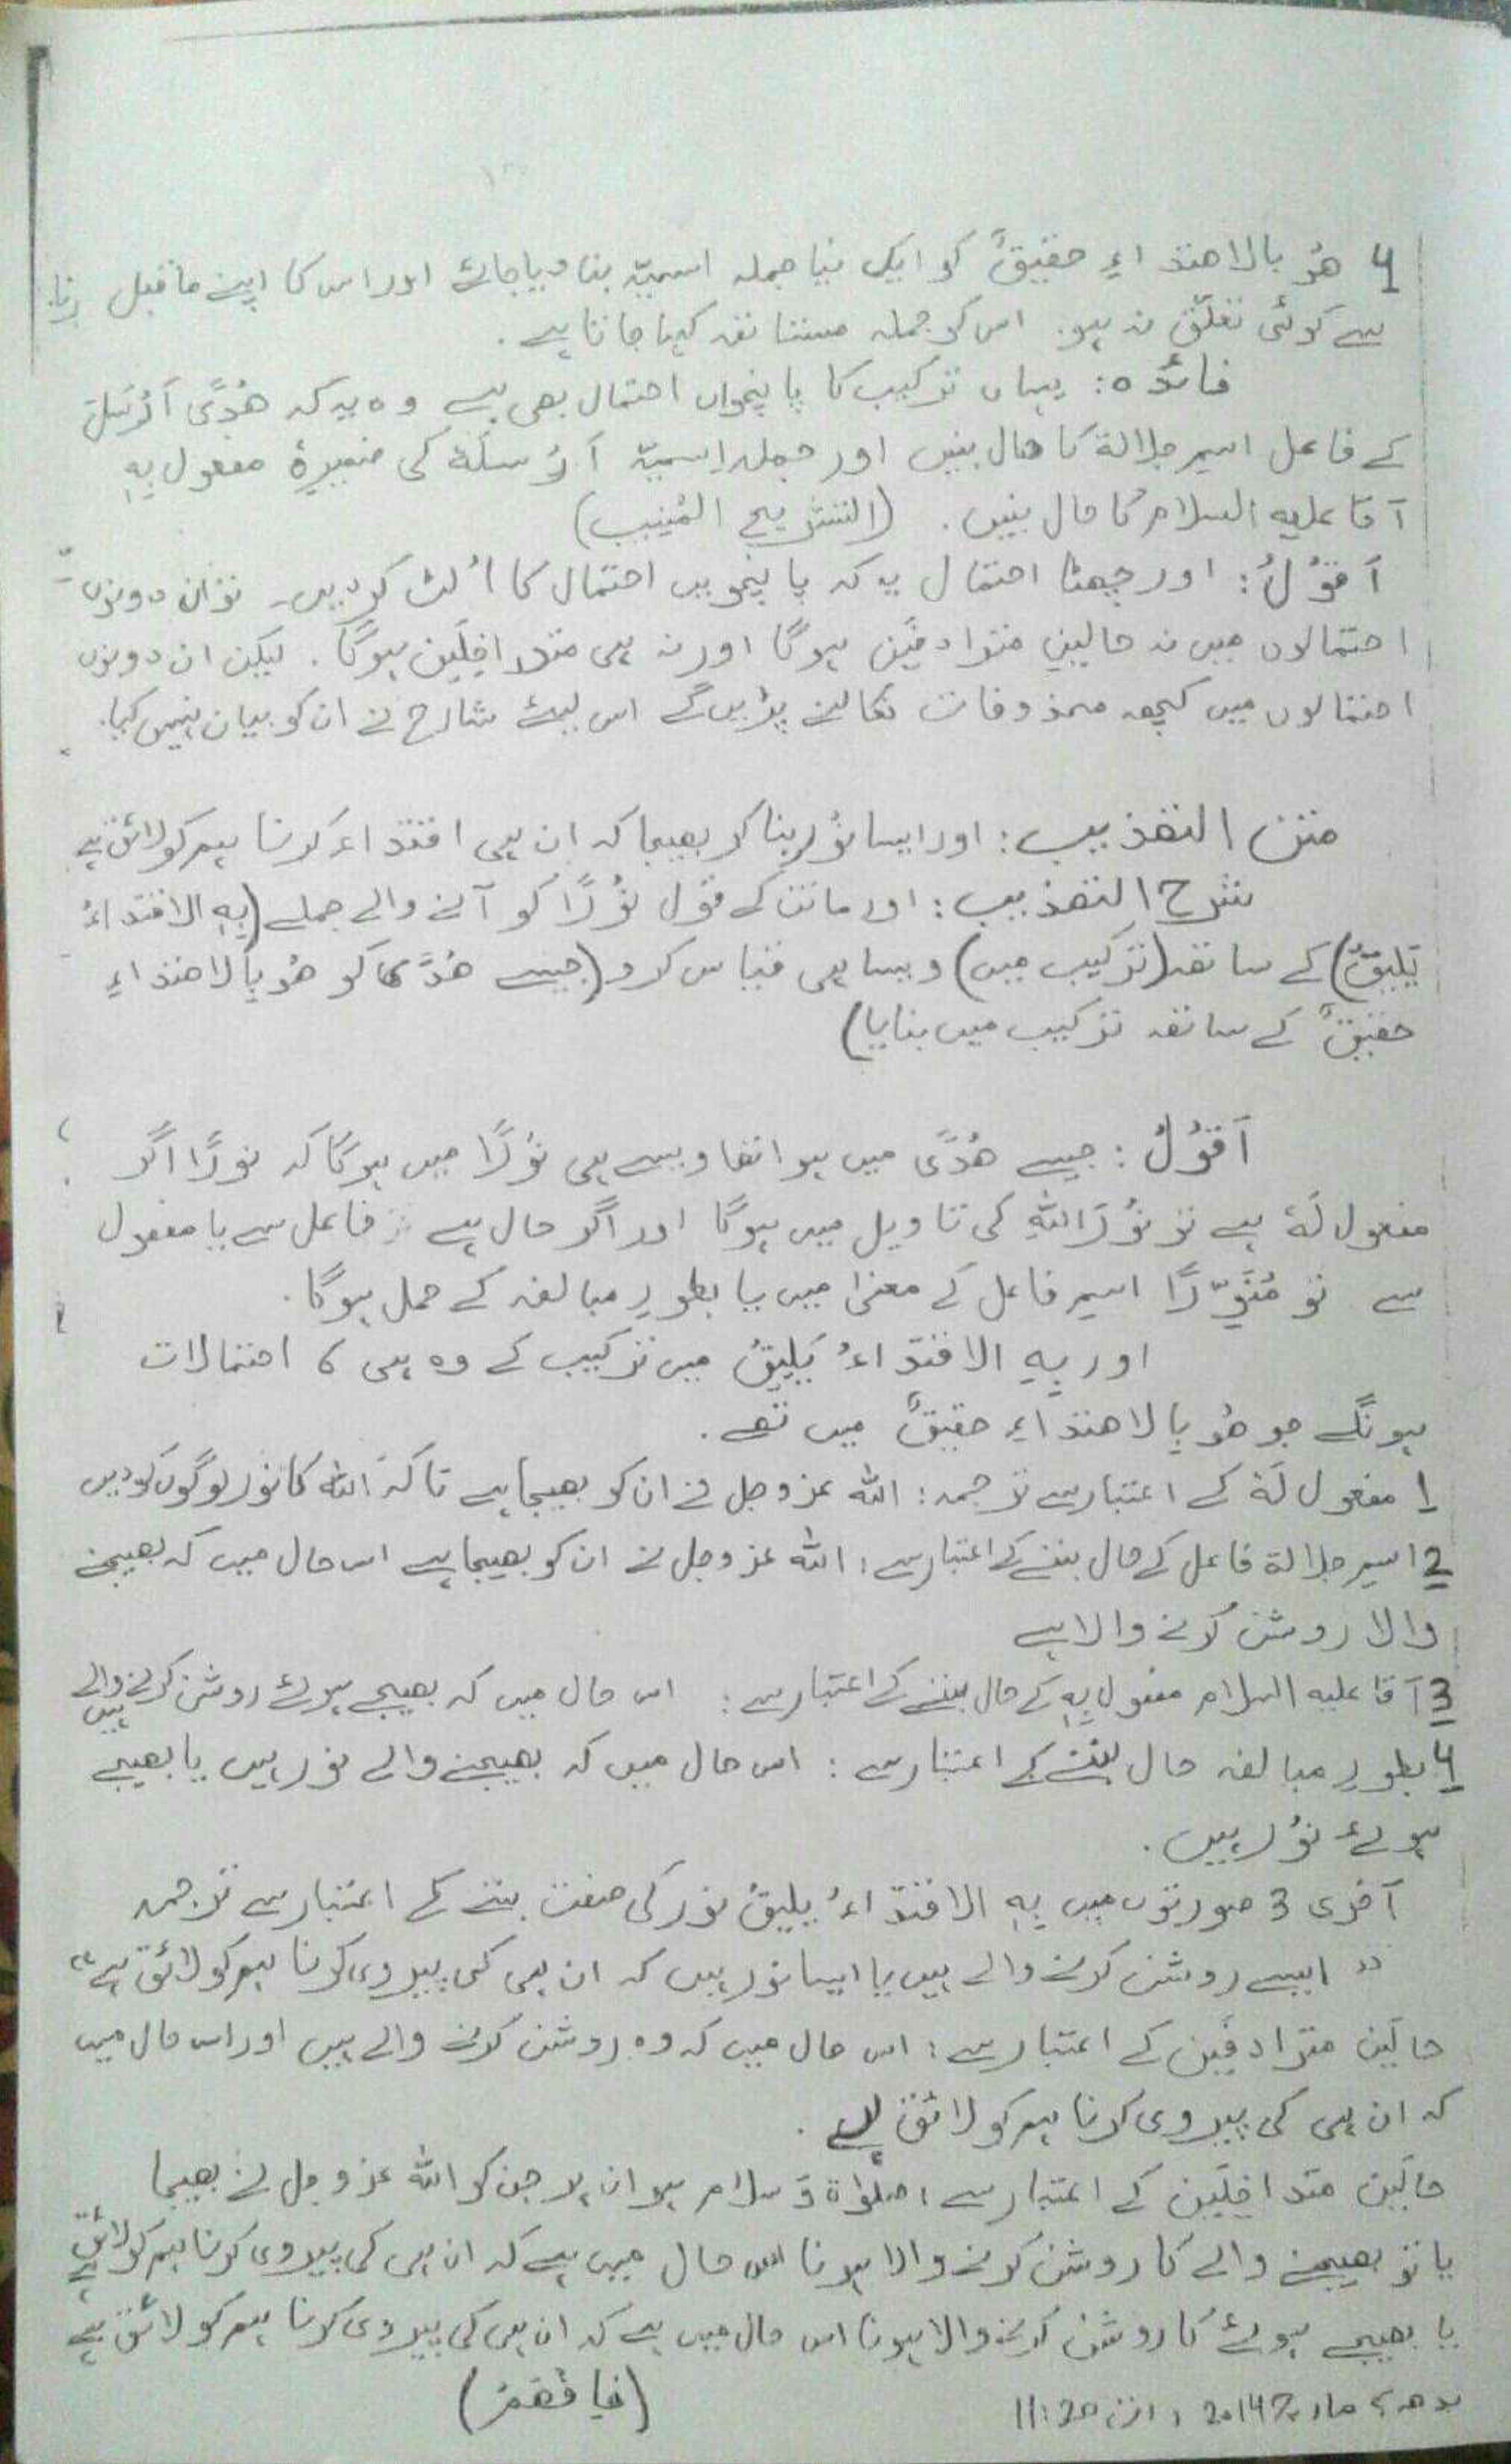 4 هُو بالاھتداءِ حقیقٌ کو ایک نیا جملہ اسمیّہ بنا دیا جائے اور اس کا اپنے ماقبل
سے کوئی تعلّق نہ ہو. اس کو جملہ مستانفہ کہا جاتا ہے.
فائدہ: یہاں ترکیب کا پانچواں احتمال بھی ہے وہ یہ کہ ھُدًی اَرْسَلَ
کے فاعل اسم جلالۃ کا حال بنیں اور جملہ اسمیّہ اَرْسلَهٗ کی ضمیرِہٗ مفعول بِهٖ
آقا علیہ السلام کا حال بنیں. (التشریح المُنِیب)
اَقُوْلُ: اور چھٹا احتمال یہ کہ پانچویں احتمال کا اُلٹ کردیں۔ تو ان دونوں
احتمالوں میں نہ حالینِ مترادفَین ہوگا اور نہ ہی متداخِلَین ہوگا. لیکن ان دونوں
احتمالوں میں کچھ محذوفات نکالنے پڑیں گے اس لیئے شارح نے ان کو بیان نہیں کیا.
متن التھذیب: اور ایسا نُور بنا کر بھیجا کہ ان ہی اقتداء کرنا ہم کو لائق ہے
شرح التھذیب: اور ماتن کے قول نُوْرًا کو آنے والے جملے (بِهِ الاقتداءُ
یَلِیْقُ) کے ساتھ (ترکیب میں) ویسا ہی قیاس کرو (جیسے ھُدًی کو ھُو بالاھتداءِ
حقیقٌ کے ساتھ ترکیب میں بنایا)
اَقُوْلُ: جیسے ھُدًی میں ہوا تھا ویسے ہی نُوْرًا میں ہوگا کہ نورًا اگر
مفعول لَهٗ ہے تو نُوْرَ اللّٰهِ کی تاویل میں ہوگا اور اگر حال ہے فاعل سے یا مفعول
سے تو مُنَوِّرًا اسم فاعل کے معنٰی میں یا بطورِ مبالغہ کے حمل ہوگا.
اور بِهِ الاقتداءُ یَلِیْقُ میں ترکیب کے وہ ہی 6 احتمالات
ہونگے جو ھُو بِالاھتداءِ حقیقٌ میں تھے.
1 مفعول لَهٗ کے اعتبار سے ترجمہ: اللّٰہ عزوجل نے ان کو بھیجا ہے تاکہ اللّٰہ کا نور لوگوں کو دیں
2 اسم جلالۃ فاعل کے حال بننے کے اعتبار سے: اللّٰہ عزوجل نے ان کو بھیجا ہے اس حال میں کہ بھیجنے
والا روشن کرنے والا ہے
3 آقا علیہ السلام مفعول بِهٖ کے حال بننے کے اعتبار سے: اس حال میں کہ بھیجے ہوئے روشن کرنے والے ہیں
4 بطورِ مبالغہ حال بننے کے اعتبار سے: اس حال میں کہ بھیجنے والے نور ہیں یا بھیجے
ہوئے نُور ہیں.
آخری 3 صورتوں میں بِهِ الاقتداءُ یلیقُ نور کی صفت بننے کے اعتبار سے ترجمہ
"ایسے روشن کرنے والے ہیں یا ایسا نور ہیں کہ ان ہی کی پیروی کرنا ہم کو لائق ہے"
حالَین مترادفَین کے اعتبار سے: اس حال میں کہ وہ روشن کرنے والے ہیں اور اس حال میں
کہ ان ہی کی پیروی کرنا ہم کو لائق ہے.
حالَین متداخِلَین کے اعتبار سے: صلوٰۃ و سلام ہو ان پر جن کو اللّٰہ عزوجل نے بھیجا
یا تو بھیجنے والے کا روشن کرنے والا ہونا اس حال میں ہے کہ ان ہی کی پیروی کرنا ہم کو لائق ہے
یا بھیجے ہوئے کا روشن کرنے والا ہونا اس حال میں ہے کہ ان ہی کی پیروی کرنا ہم کو لائق ہے
(فافھَمْ)
بدھ 5 مارچ 2014، رات 11:20